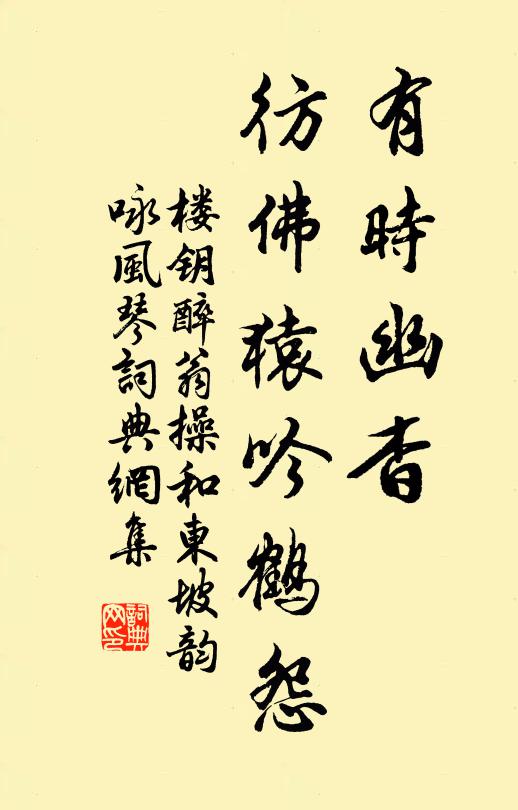 有時幽杳
彷佛猿吟鶴怨
楼钥醉翁操和東坡韵
咏風琴詞典網集
詞典
网印